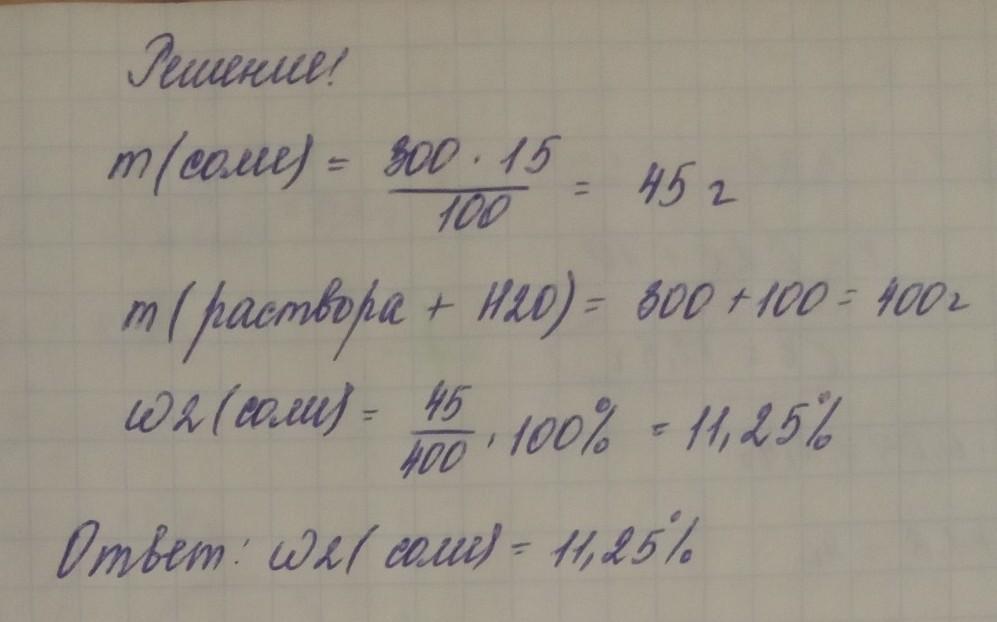 Решение!
m(соли) = 300 · 15 / 100 = 45 г
m(раствора + H2O) = 300 + 100 = 400г
ω2(соли) = 45 / 400 · 100% = 11,25%
Ответ: ω2(соли) = 11,25%